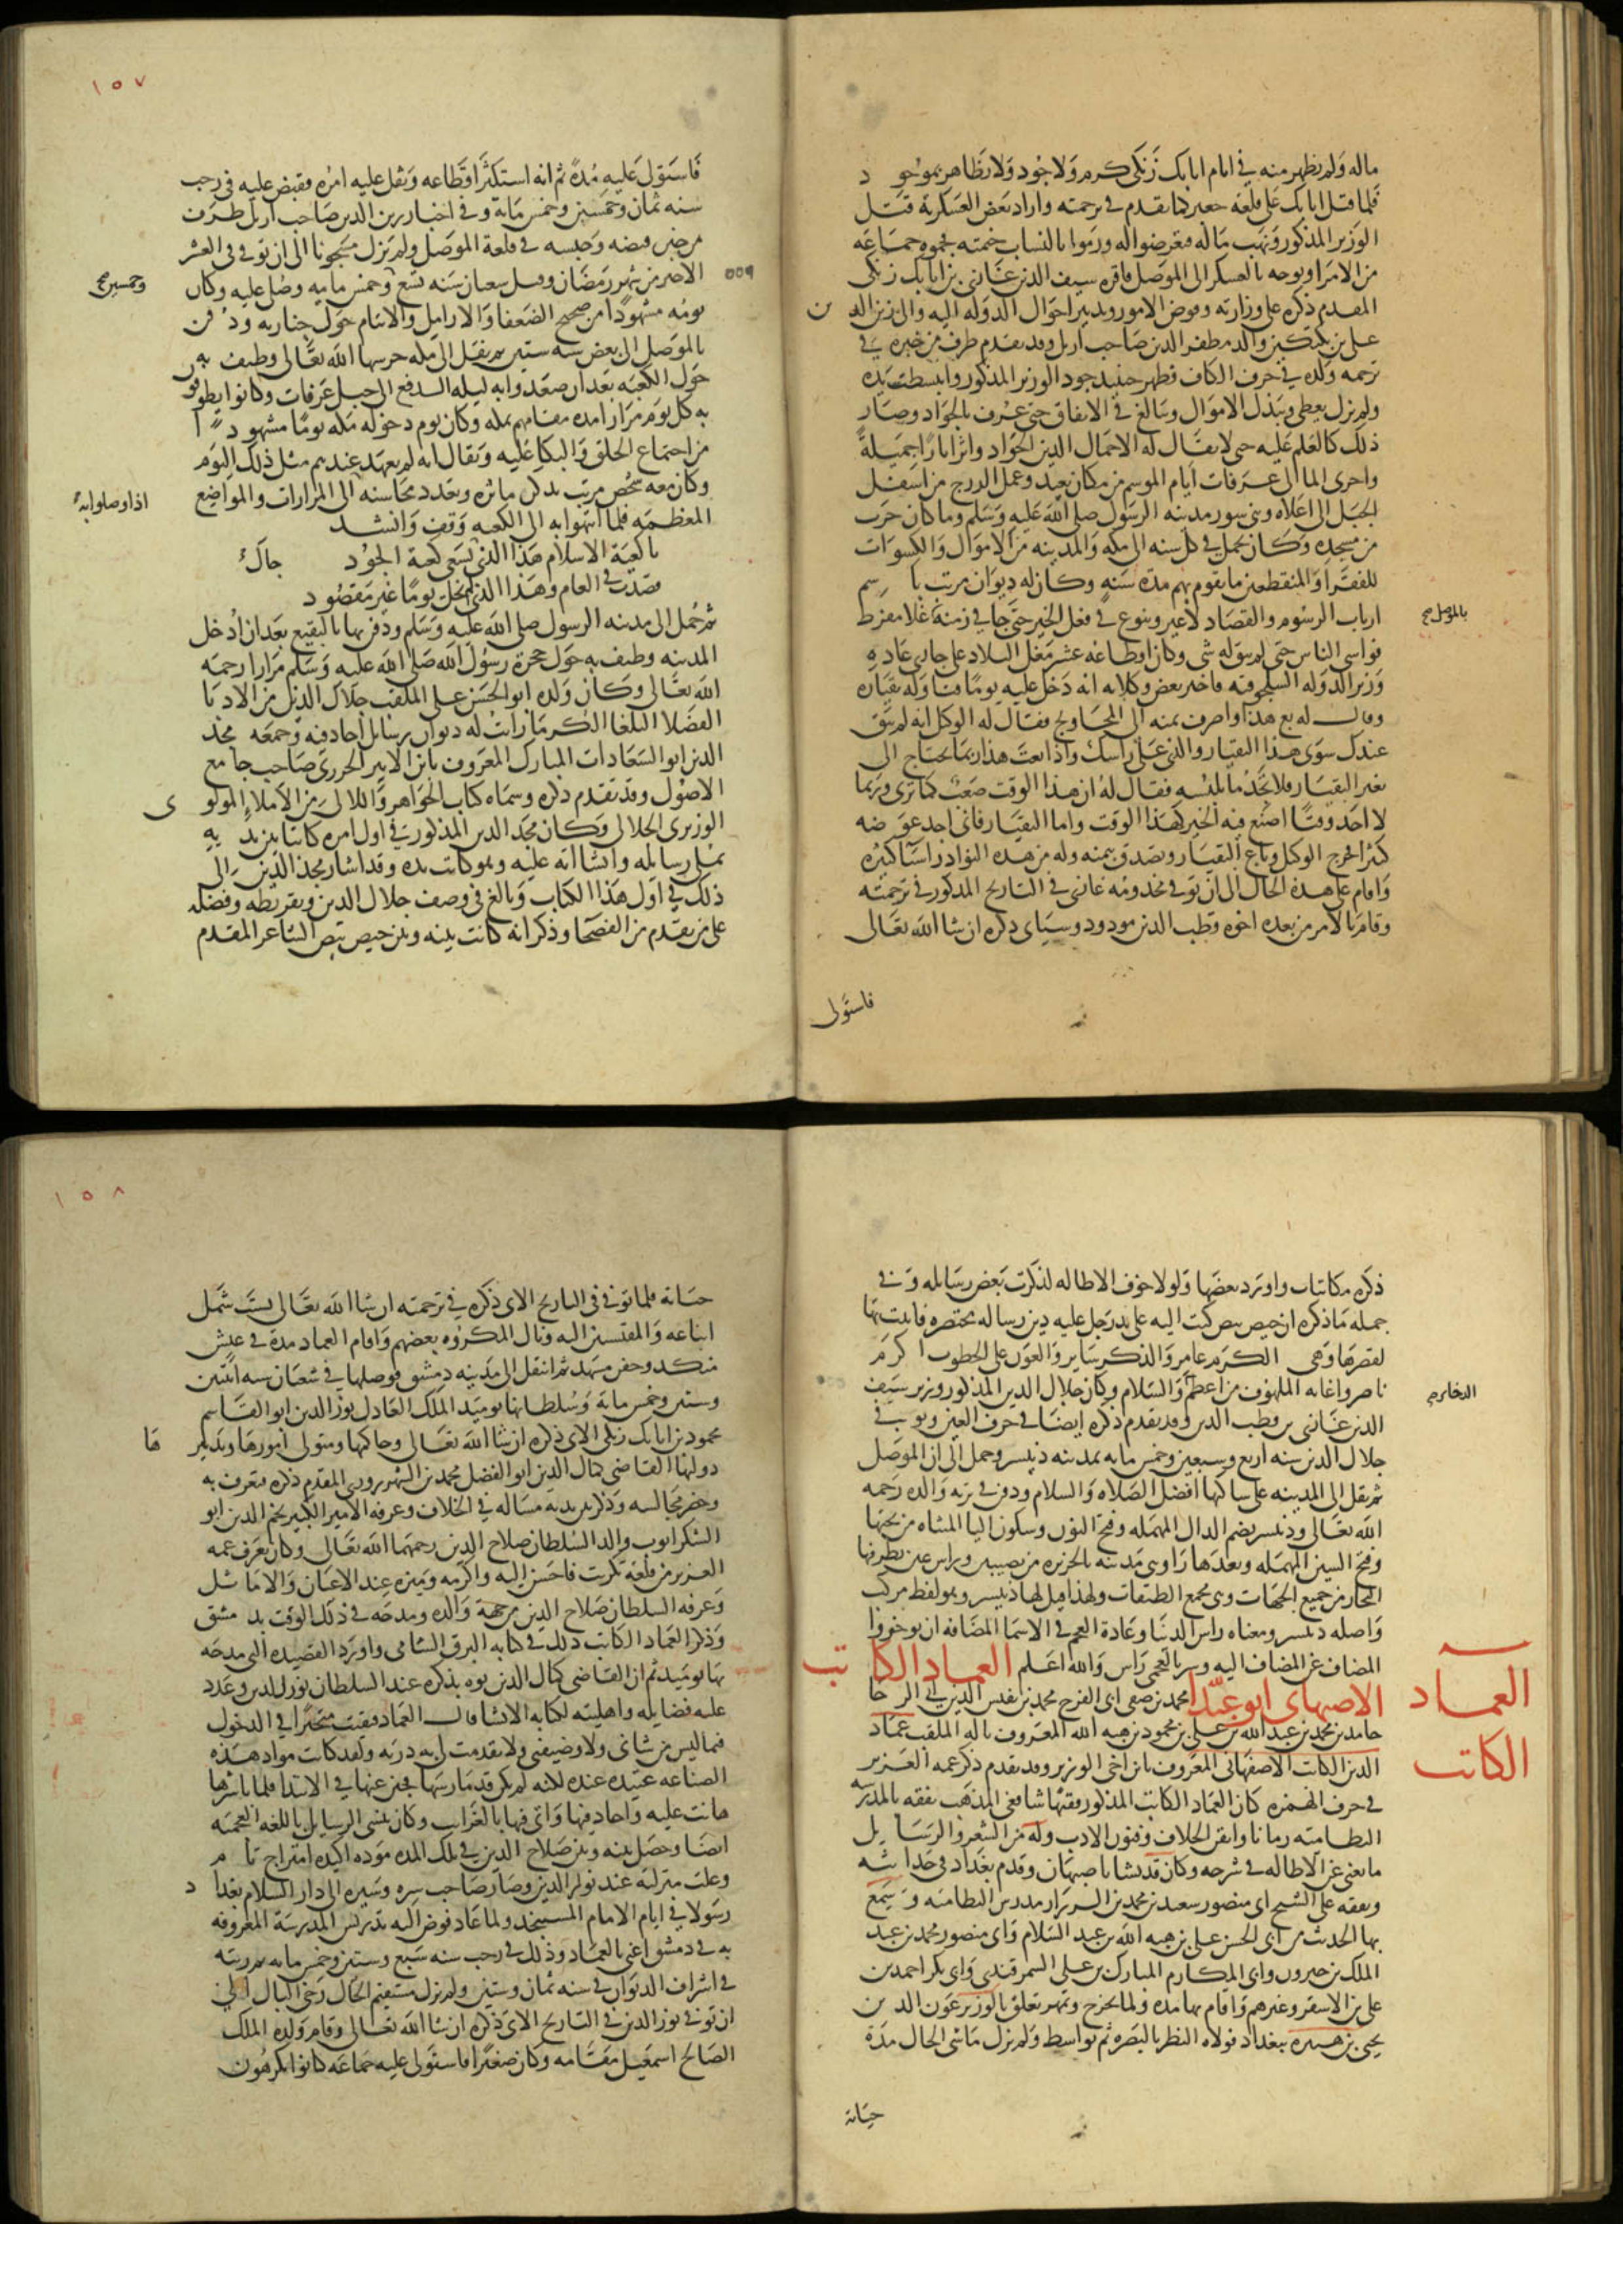 ماله ولم يظهر منه في ايام اتابك زنكي كرم ولا جود ولا تظاهر بموجود
فلما قتل اتابك على قلعة جعبر كما تقدم في ترجمته واراد بعض العسكرية قتل
الوزير المذكور ونهب ماله فتعرضوا له ورموا بالنشاب خيمته فحموه جماعه
من الامرا وتوجه بالعسكر الى الموصل فاقره سيف الدين غازي بن اتابك زنكي
المقدم ذكره على وزارته وفوض الامور وتدبير احوال الدوله اليه والى زين الدين
علي بن بكتكين والد مظفر الدين صاحب اربل وقد تقدم طرف من خبره في
ترجمه ولده في حرف الكاف فظهر حينيذ جود الوزير المذكور وانبسطت يده
ولم يزل يعطي ويبذل الاموال ويبالغ في الانفاق حتى عرف بالجواد وصار
ذلك كالعلم عليه حتى لا يقال له الا جمال الدين الجواد واثر اثارا جميلة
واجرى الما الى عرفات ايام الموسم من مكان بعيد وعمل الدرج من اسفل
الجبل الى اعلاه وبنى سور مدينه الرسول صلى الله عليه وسلم وما كان خرب
من مسجده وكان يحمل في كل سنه الى مكه والمدينه من الاموال والكسوات
للفقرا والمنقطعين ما يقوم بهم مدة سنه وكان له ديوان مرتب باسم
ارباب الرسوم والقصاد لا غير وتنوع في فعل الخير حتى جا في زمنه غلا مفرط
بالموصل صح
فواسى الناس حتى لم يبق له شي وكان اقطاعه عشر مغل البلاد على جاري عادة
وزير الدوله السلجوقيه فاخبر بعض وكلايه انه دخل عليه يوما فناوله بقياره
وقال له بع هذا واصرف ثمنه الى المحاويج فقال له الوكيل انه لم يبق
عندك سوى هذا البقيار والذي على راسك واذا بعت هذا ربما تحتاج الى
تغير البقيار فلا تجد ما تلبسه فقال له ان هذا الوقت صعب كما ترى وربما
لا اجد وقتا اصنع فيه الخير كهذا الوقت واما البقيار فاني اجد عوضه
كثيرا فخرج الوكيل وباع البقيار وتصدق بثمنه وله من هذه النوادر اشيا كثيره
واقام على هذه الحال الى ان توفي مخدومه غازي في التاريخ المذكور في ترجمته
وقام بالامر من بعده اخوه قطب الدين مودود وسياتي ذكره ان شا الله تعالى
فاستولى
١٥٧
فاستولى عليه مدة ثم انه استكثر اقطاعه وثقل عليه امره فقبض عليه في رجب
سنه ثمان وخمسين وخمس ماية وفي اخبار زين الدين صاحب اربل طرف
من خبر قبضه وحبسه في قلعة الموصل ولم يزل مسجونا الى ان توفي في العشر
الاخير من شهر رمضان وقيل شعبان سنه تسع وخمس مايه وصلي عليه وكان
وخمسين صح
٥٥٩
يومه مشهودا من ضجيج الضعفا والارامل والايتام حول جنازته ودفن
بالموصل الى بعض سنه ستين ثم نقل الى مكه حرسها الله تعالى وطيف به
حول الكعبه بعد ان صعدوا به ليله الدفع الى جبل عرفات وكانوا يطوفون
به كل يوم مرارا مده مقامهم بمكه وكان يوم دخوله مكه يوما مشهودا
من اجتماع الخلق والبكا عليه ويقال انه لم يعهد عندهم مثل ذلك اليوم
وكان معه شخص مرتب يذكر ماثره ويعدد محاسنه الى المزارات والمواضع
اذا وصلوا به
المعظمه فلما انتهوا به الى الكعبه وقف وانشد
يا كعبة الاسلام هذا الذي يسعى كعبة الجود جاك
قصدت في العام وهذا الذي لم يخل يوما غير مقصود
ثم حمل الى مدينه الرسول صلى الله عليه وسلم ودفن بها بالبقيع بعد ان ادخل
المدينه وطيف به حول حجرة رسول الله صلى الله عليه وسلم مرارا رحمه
الله تعالى وكان ولده ابو الحسن علي الملقب جلال الدين من الادبا
الفضلا البلغا الكرما رايت له ديوان رسايل اجاد فيه وجمعه مجد
الدين ابو السعادات المبارك المعروف بابن الاثير الجزري صاحب جامع
الاصول وقد تقدم ذكره وسماه كتاب الجواهر واللالي من الاملاء المولوي
الوزيري الجلالي وكان مجد الدين المذكور في اول امره كاتبا بين يديه
يملي رسايله وانشاءاته عليه وهو كاتب يده وقد اشار مجد الدين الى
ذلك في اول هذا الكتاب وبالغ في وصف جلال الدين وتقريظه وفضله
على من تقدم من الفصحا وذكر انه كانت بينه وبين حيص بيص الشاعر المقدم
ذكره مكاتبات واورد بعضها ولولا خوف الاطاله لذكرت بعض رسايله وفي
جمله ما ذكره ان حيص بيص كتب اليه على يد رجل عليه دين رساله مختصره فاتيت بها
لقصرها وهي الكرم عامر والذكر ساير والعون على الخطوب اكرم
ناصر واغاثه الملهوف من اعظم والسلام وكان جلال الدين المذكور وزير سيف
الذخاير صح
الدين غازي بن قطب الدين وقد تقدم ذكره ايضا في حرف الغين وتوفي
جلال الدين سنه اربع وسبعين وخمس مايه بمدينه دنيسر وحمل الى الموصل
ثم نقل الى المدينه على ساكنها افضل الصلاه والسلام ودفن في تربه والده رحمه
الله تعالى ودنيسر بضم الدال المهمله وفتح النون وسكون اليا المثناه من تحتها
وفتح السين المهمله وبعدها را وهي مدينه بالجزيره من نصيبين وراس عين تطرقها
التجار من جميع الجهات وهي مجمع الطرقات ولهذا قيل لها دنيسر وهو لفظ مركب
واصله دنيسر ومعناه راس الدنيا وعادة العجم في الاسما المضافه ان يوخروا
المضاف عن المضاف اليه وسر بالعجمي راس والله اعلم العماد الكاتب
الاصبهاني ابو عبد الله محمد بن صفي الدين ابي الفرج محمد بن نفيس الدين ابي الرجا
العماد
الكاتب
حامد بن محمد بن عبد الله بن علي بن محمود بن هبه الله المعروف باله الملقب عماد
الدين الكاتب الاصفهاني المعروف بابن اخي العزيز وقد تقدم ذكر عمه العزيز
في حرف الهمزه كان العماد الكاتب المذكور فقيها شافعي المذهب تفقه بالمدرسه
النظاميه زمانا واتقن الخلاف وفنون الادب وله من الشعر والرسايل
ما يغني عن الاطاله في شرحه وكان قد نشا باصبهان وقدم بغداد في حداثته
وتفقه على الشيخ ابي منصور سعيد بن محمد بن الرزاز مدرس النظاميه وسمع
بها الحديث من ابي الحسن علي بن هبه الله بن عبد السلام وابي منصور محمد بن عبد
الملك بن خيرون وابي المكارم المبارك بن علي السمرقندي وابي بكر احمد بن
علي بن الاشقر وغيرهم واقام بها مده ولما تخرج وتمهر تعلق بالوزير عون الدين
يحيى بن هبيره ببغداد فولاه النظر بالبصره ثم بواسط ولم يزل ماشي الحال مدة
حياته
١٥٨
حياته فلما توفي في التاريخ الاتي ذكره في ترجمته ان شا الله تعالى تشتت شمل
اتباعه والمنتسبين اليه ونال المكروه بعضهم واقام العماد مدة في عيش
منكد وجفن مسهد ثم انتقل الى مدينه دمشق فوصلها في شعبان سنه اثنتين
وستين وخمس مايه وسلطانها يوميذ الملك العادل نور الدين ابو القاسم
محمود بن اتابك زنكي الاتي ذكره ان شا الله تعالى وحاكمها ومتولي امورها وتدبير
دولتها القاضي كمال الدين ابو الفضل محمد بن الشهرزوري المقدم ذكره فتعرف به
وحضر مجالسه وذكر بين يديه مساله في الخلاف وعرفه الامير الكبير نجم الدين ابو
الشكر ايوب والد السلطان صلاح الدين رحمهما الله تعالى وكان يعرف عمه
العزيز من قلعة تكريت فاحسن اليه واكرمه وميزه عند الاعيان والاماثل
وعرفه السلطان صلاح الدين من جهة والده ومدحه في ذلك الوقت بدمشق
وذكر العماد الكاتب ذلك في كتابه البرق الشامي واورد القصيده التي مدحه
بها يوميذ ثم ان القاضي كمال الدين نوه بذكره عند السلطان نور الدين وعدد
عليه فضايله واهليته لكتابه الانشا قال العماد فبقيت متحيرا في الدخول
فيما ليس من شاني ولا وظيفتي ولا تقدمت لي به دربه ولقد كانت مواد هذه
الصناعه عتيده عنده لكنه لم يكن قد مارسها فجبن عنها في الابتدا فلما باشرها
هانت عليه واجاد فيها واتى فيها بالغرايب وكان ينشي الرسايل باللغه العجميه
ايضا وحصل بينه وبين صلاح الدين في تلك المده موده اكيده امتزاج تام
وعلت منزلته عند نور الدين وصار صاحب سره وسيره الى دار السلام بغداد
رسولا في ايام الامام المستنجد ولما عاد فوض اليه تدريس المدرسة المعروفه
به في دمشق اعني بالعماد وذلك في رجب سنه سبع وستين وخمس مايه ثم رتبه
في اشراف الديوان في سنه ثمان وستين ولم يزل مستقيم الحال رخي البال الى
ان توفي نور الدين في التاريخ الاتي ذكره ان شا الله تعالى وقام ولده الملك
الصالح اسمعيل مقامه وكان صغيرا فاستولى عليه جماعه كانوا يكرهون